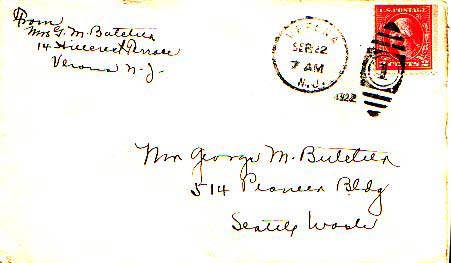 From
Mrs G. M. Butcher
14 Hillcrest Terrace
Verona N-J.
VERONA
SEP 22
7 AM
N.J.
1922
U.S. POSTAGE
CENTS 2
Mr George M. Butcher
514 Pioneer Bldg
Seattle Wash